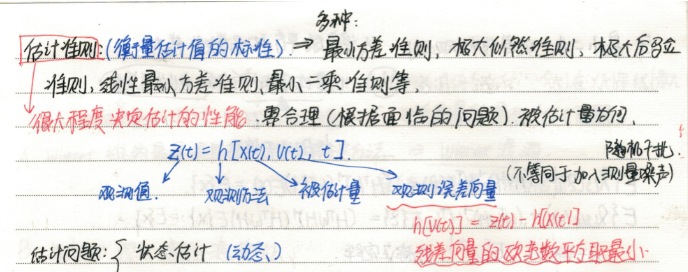 多种:
估计准则:(衡量估计值的标准). ⇒ 最小方差准则, 极大似然准则, 极大后验
准则, 线性最小方差准则, 最小二乘准则等,
很大程度决定估计的性能. 要合理(根据面临的问题). 被估计量为
z(t) = h[x(t), v(t), t].
随机干扰.
(不等同于加入测量噪声)
观测值. 观测方法 被估计量 观测误差向量
h[v(t)] = z(t) - h[x(t)]
估计问题: { 状态估计 (动态、)
残差向量的欧态数平方取最小.